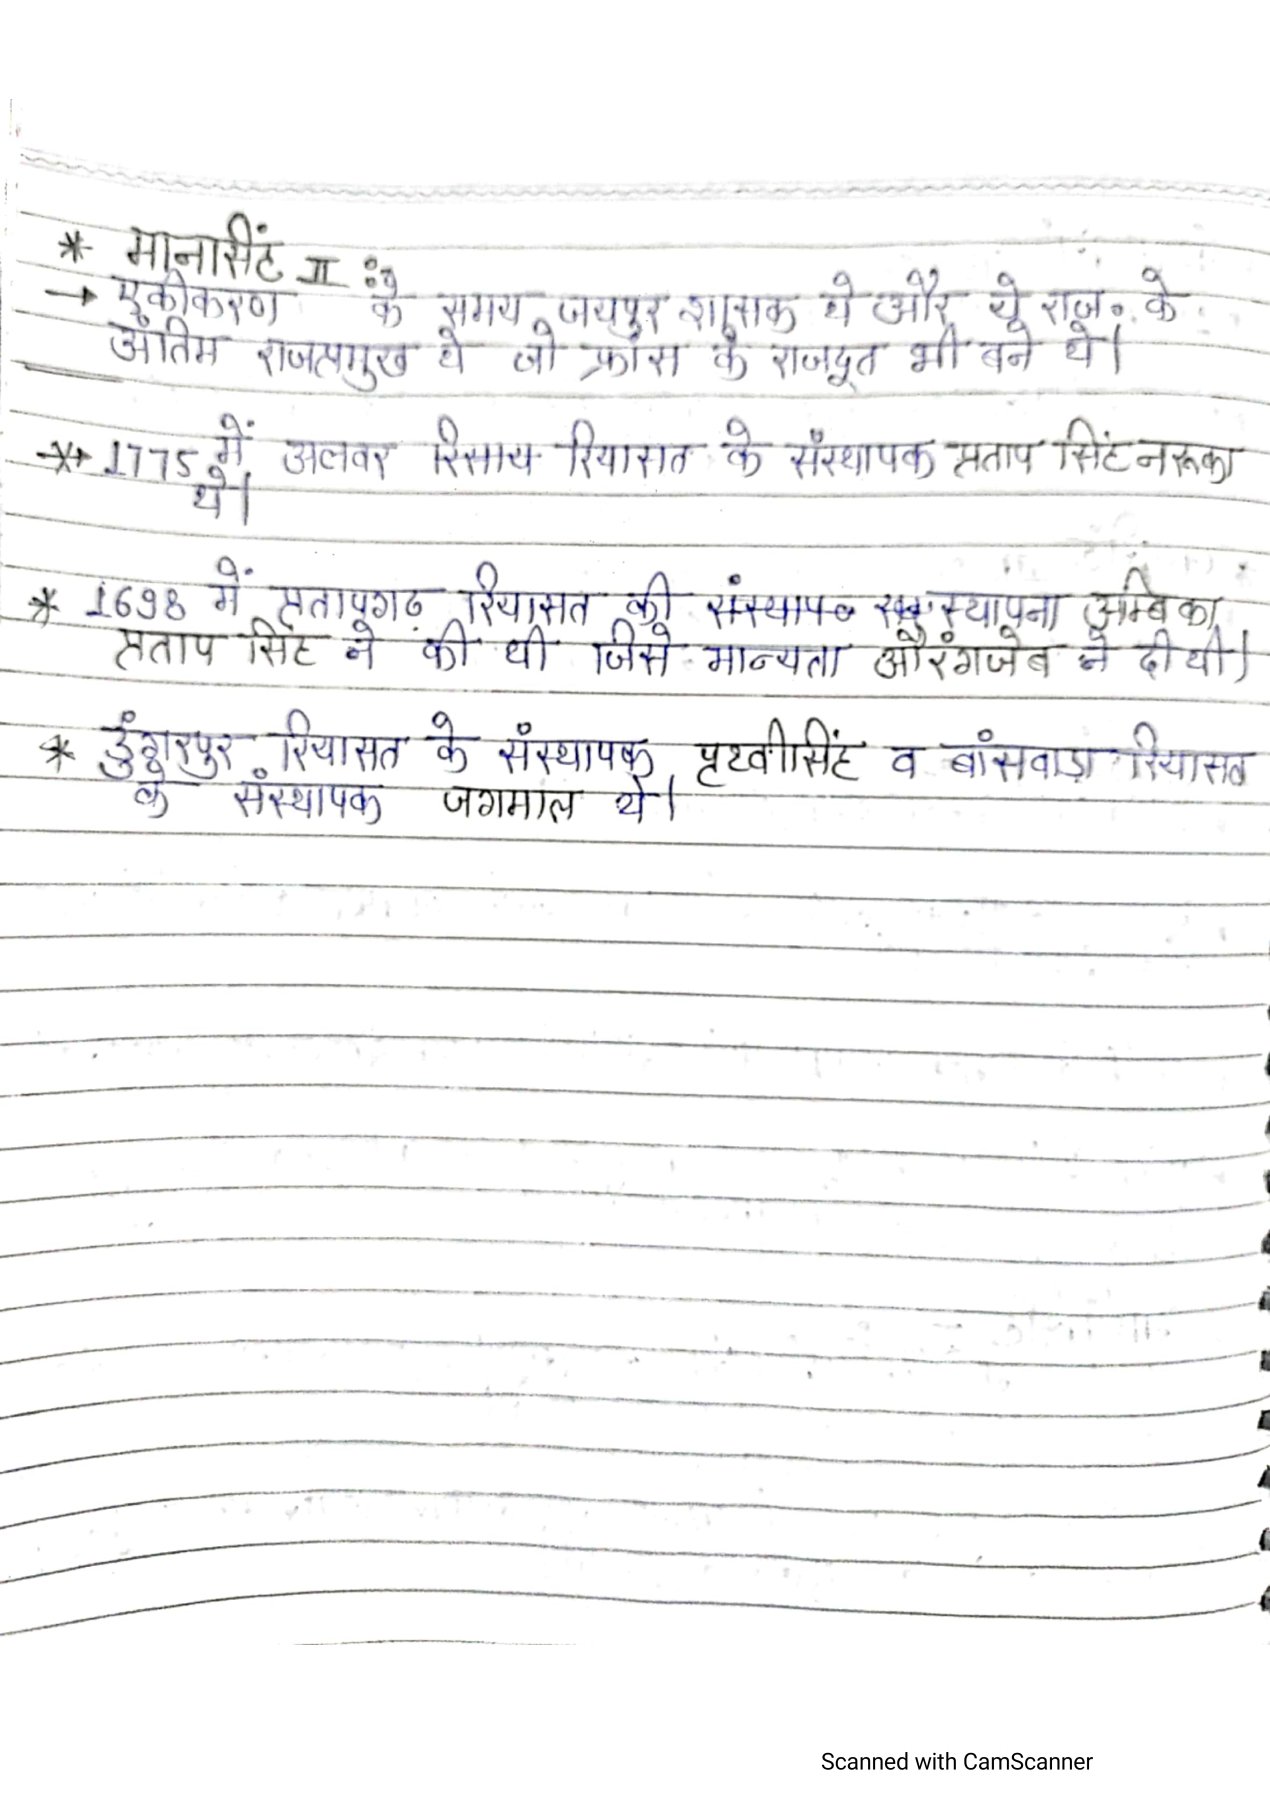 * मानसिंह II :→
→ एकीकरण के समय जयपुर शासक थे और ये राज॰ के
अंतिम राजप्रमुख थे जो फ्रांस के राजदूत भी बने थे।
* → 1775 में अलवर रिसाय रियासत के संस्थापक प्रताप सिंह नरूका
थे।
* 1698 में प्रतापगढ़ रियासत की संस्थाप स्थापना अम्बिका
प्रताप सिंह ने की थी जिसे मान्यता औरंगजेब ने दी थी।
* डुंगरपुर रियासत के संस्थापक पृथ्वीसिंह व बांसवाड़ा रियासत
के संस्थापक जगमाल थे।
Scanned with CamScanner